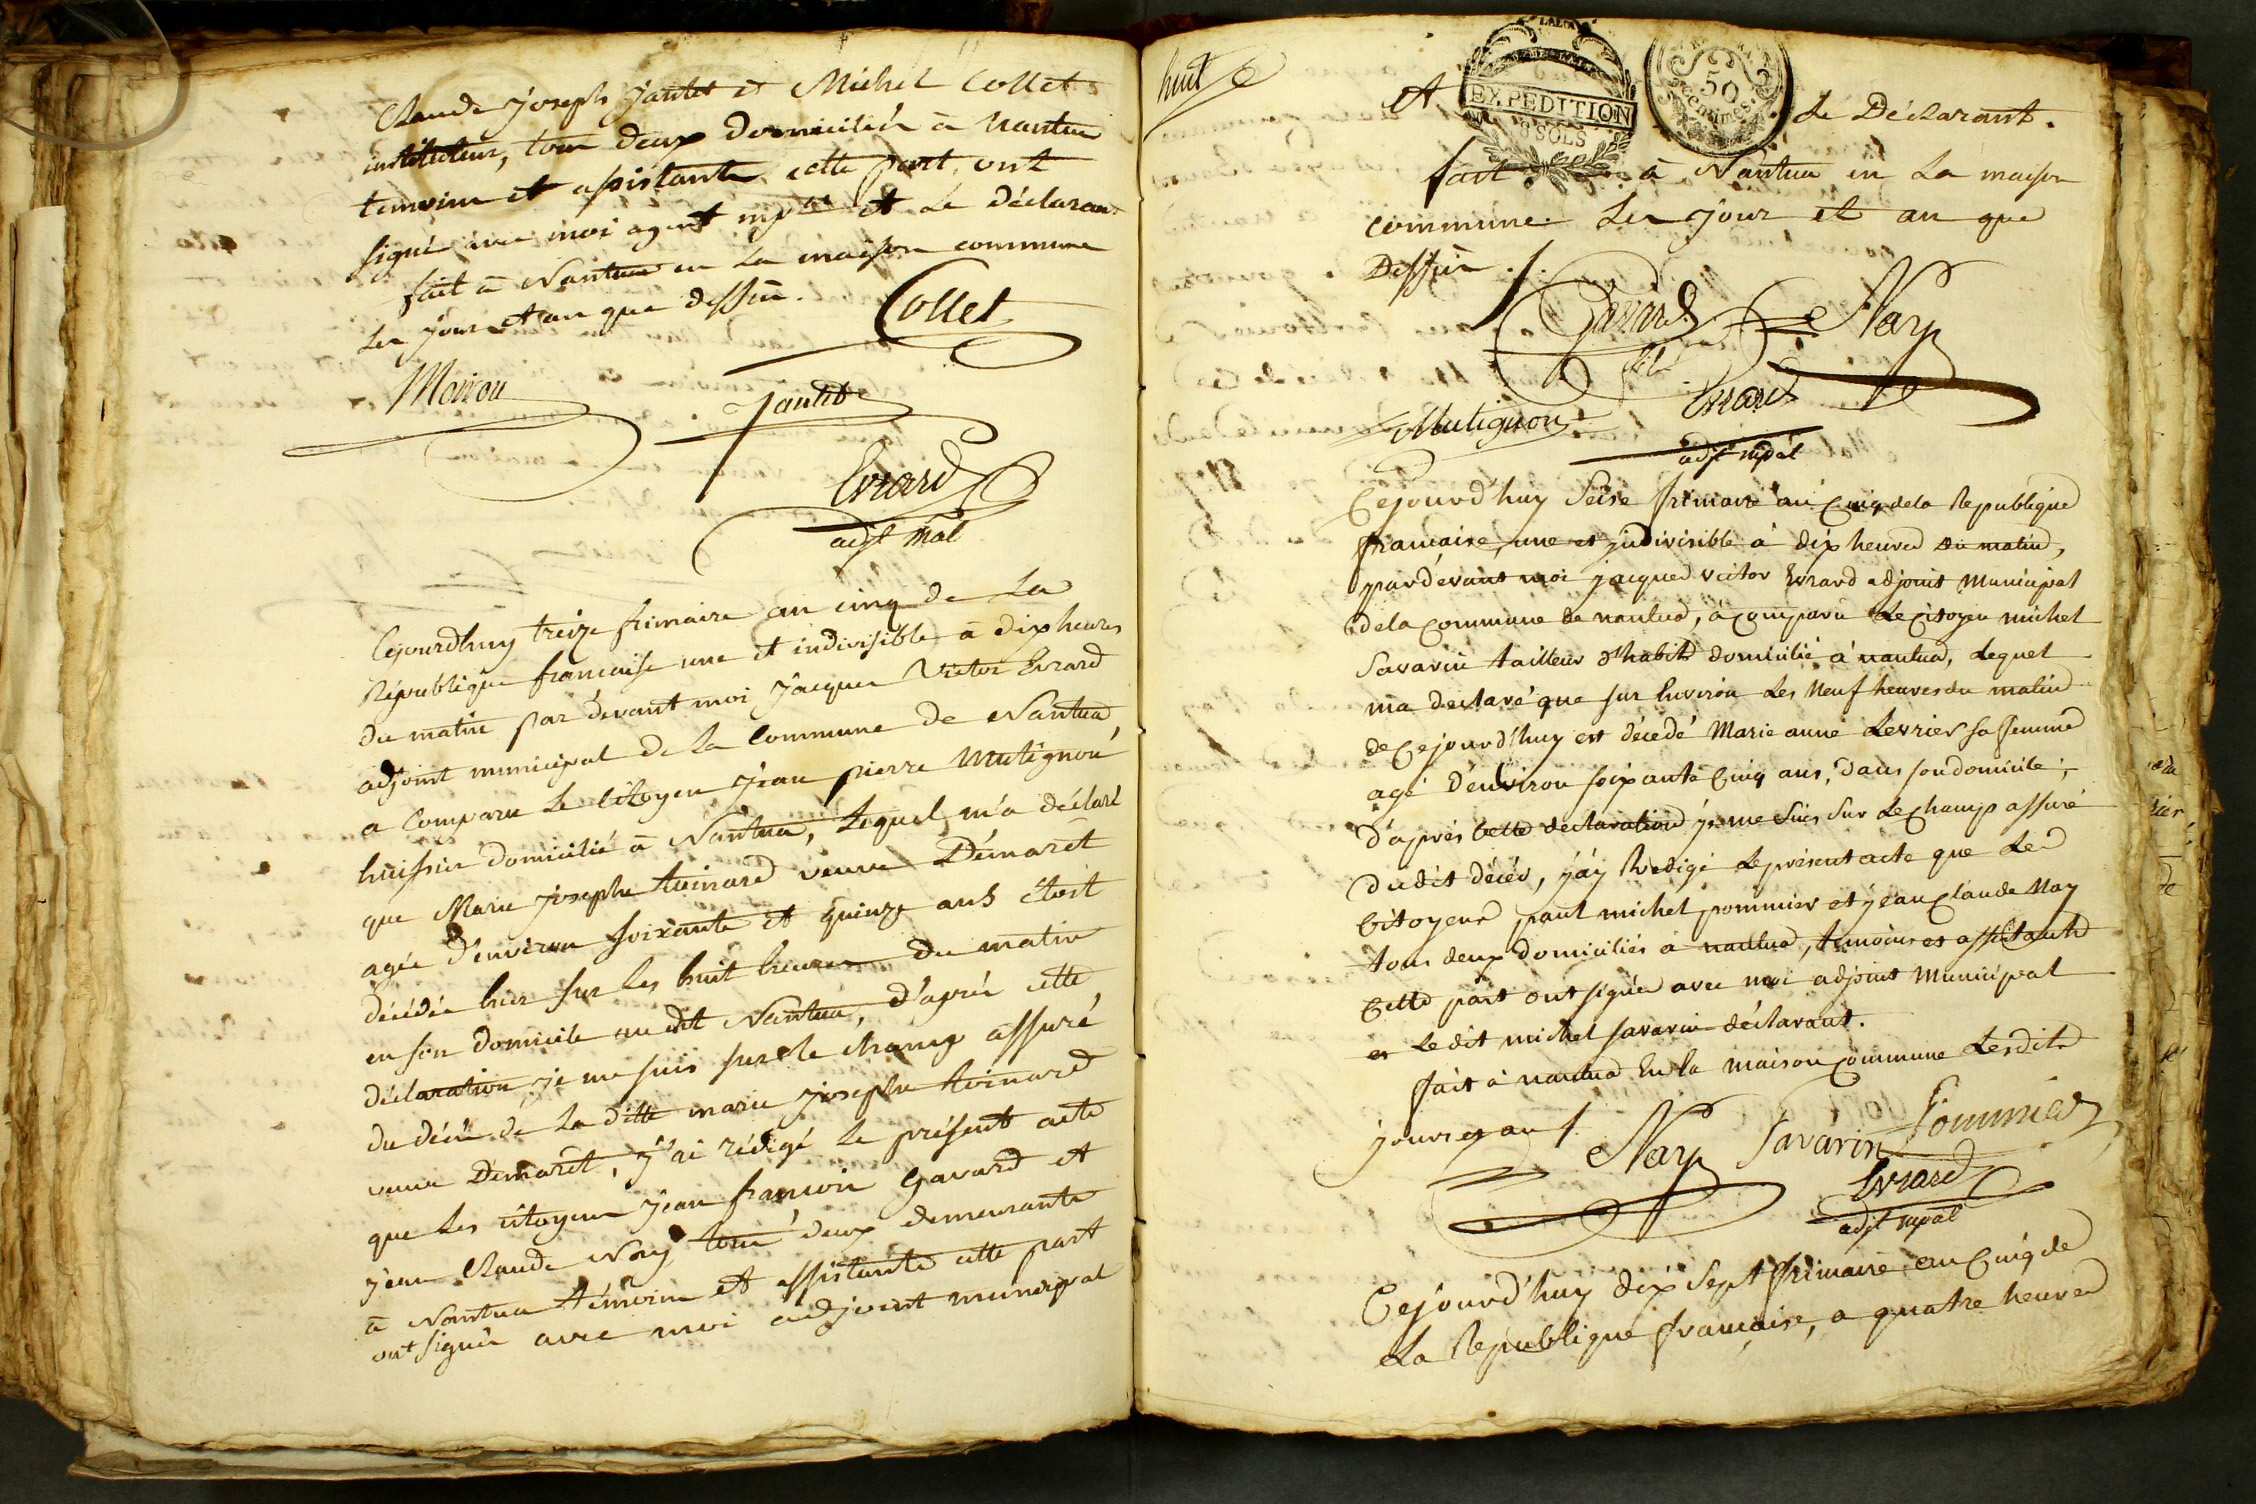 Claude Joseph Jantet et Michel Collet
instituteur, tous deux domiciliés à Nantua
temoins et assistants cette part, ont
signé avec moi agent mpal et le déclarant
fait à Nantua en la maison commune
les jour et an que dessus.
Collet
Moirou
Jantet
Evrard
adjt mal
Cejourdhuy treize frimaire an cinq de la
République francaise une et indivisible à dix heures
du matin par devant moi Jacques Victor Evrard
adjoint municipal de la Commune de Nantua
a comparu le citoyen Jean pierre Mutignon
huissier domicilié à Nantua, lequel m'a déclaré
que Marie Josephe tuinard veuve Démarêt
agée d'environ soixante et quinze ans étoit
décédée hier sur les huit heures du matin
en son domicile au dit Nantua, d'après cette
déclaration, je me suis sur le champ assuré
du décès de la ditte marie josephe tuinard
veuve Démarêt, j'ai rédigé le présent acte
que les citoyens Jean francois Gavard et
Jean Claude Nay tous deux demeurants
à Nantua témoins et assistants cette part
ont signés avec moi adjoint municipal
huit
et le Déclarant.
EXPEDITION
8 SOLS
50
centimes
fait à Nantua en la maison
commune les jour et an que
Dessus ./.
Gavard Nay
fils
Mutignon Evrard
adjt mpal
Cejourd'huy Seise frimaire an Cinq de la Republique
francaise, une et indivisible à dix heures du matin,
pardevant moi jacques victor Evrard adjoint Municipal
de la Commune de nantua, à comparu Le Citoyen michel
Savarin tailleur d'habits domicilié à nantua, lequel
ma declaré que sur Environ les Neuf heures du matin
de Cejourd'huy est décedé Marie anne Levrier sa femme
agé d'environ soixante Cinq ans, dans son domicile,
d'après Cette declaration je me suis sur le champ assuré
dudit décès, j'ay Redigé le présent acte que Les
Citoyens paul michel pommier et jean Claude Nay
tous deux domiciliés à nantua, temoins et assistants
Cette part ont signés avec moi adjoint Municipal
et Ledit michel savarin déclarant.
fait à nantua En la maison Commune Lesdits
jours et an /.
Nay Savarin Pommier
Evrard
adjt mpal
Cejourd'huy dix Sept frimaire an Cinq de
La Republique francaise, a quatre heures